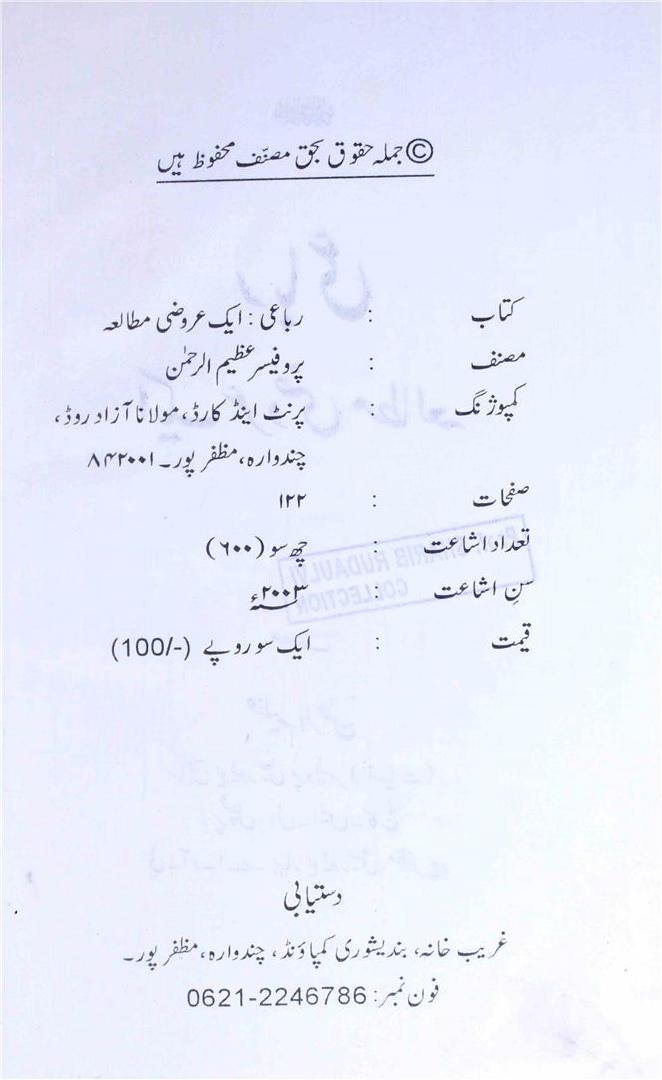 © جملہ حقوق بحق مصنّف محفوظ ہیں
کتاب : رباعی : ایک عروضی مطالعہ
مصنف : پروفیسر عظیم الرحمٰن
کمپوزنگ : پرنٹ اینڈ کارڈ، مولانا آزاد روڈ،
چندوارہ، مظفر پور۔ ۸۴۲۰۰۱
صفحات : ۱۲۲
تعداد اشاعت : چھ سو (۶۰۰)
سنِ اشاعت : ۲۰۰۳ء
قیمت : ایک سو روپے (100/-)
دستیابی
غریب خانہ، بندیشوری کمپاؤنڈ، چندوارہ، مظفر پور۔
فون نمبر: 0621-2246786